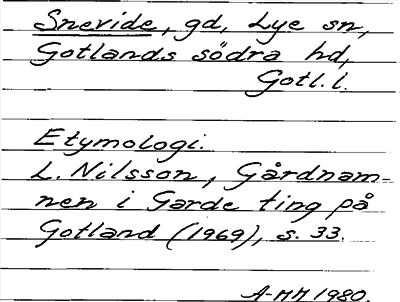 Snevide, gd, Lye sn,
Gotlands södra hd,
Gotl. l.
Etymologi.
L. Nilsson, Gårdnam-
nen i Garde ting på
Gotland (1969), s. 33.
A-MH 1980.